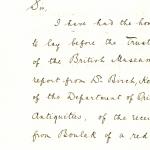 Sir,
I have had the hon
to lay before the Trust
of the British Museum
report from Dr. Birch, Ke
of the Department of
Antiquities, of the rece
from Boulak of a red